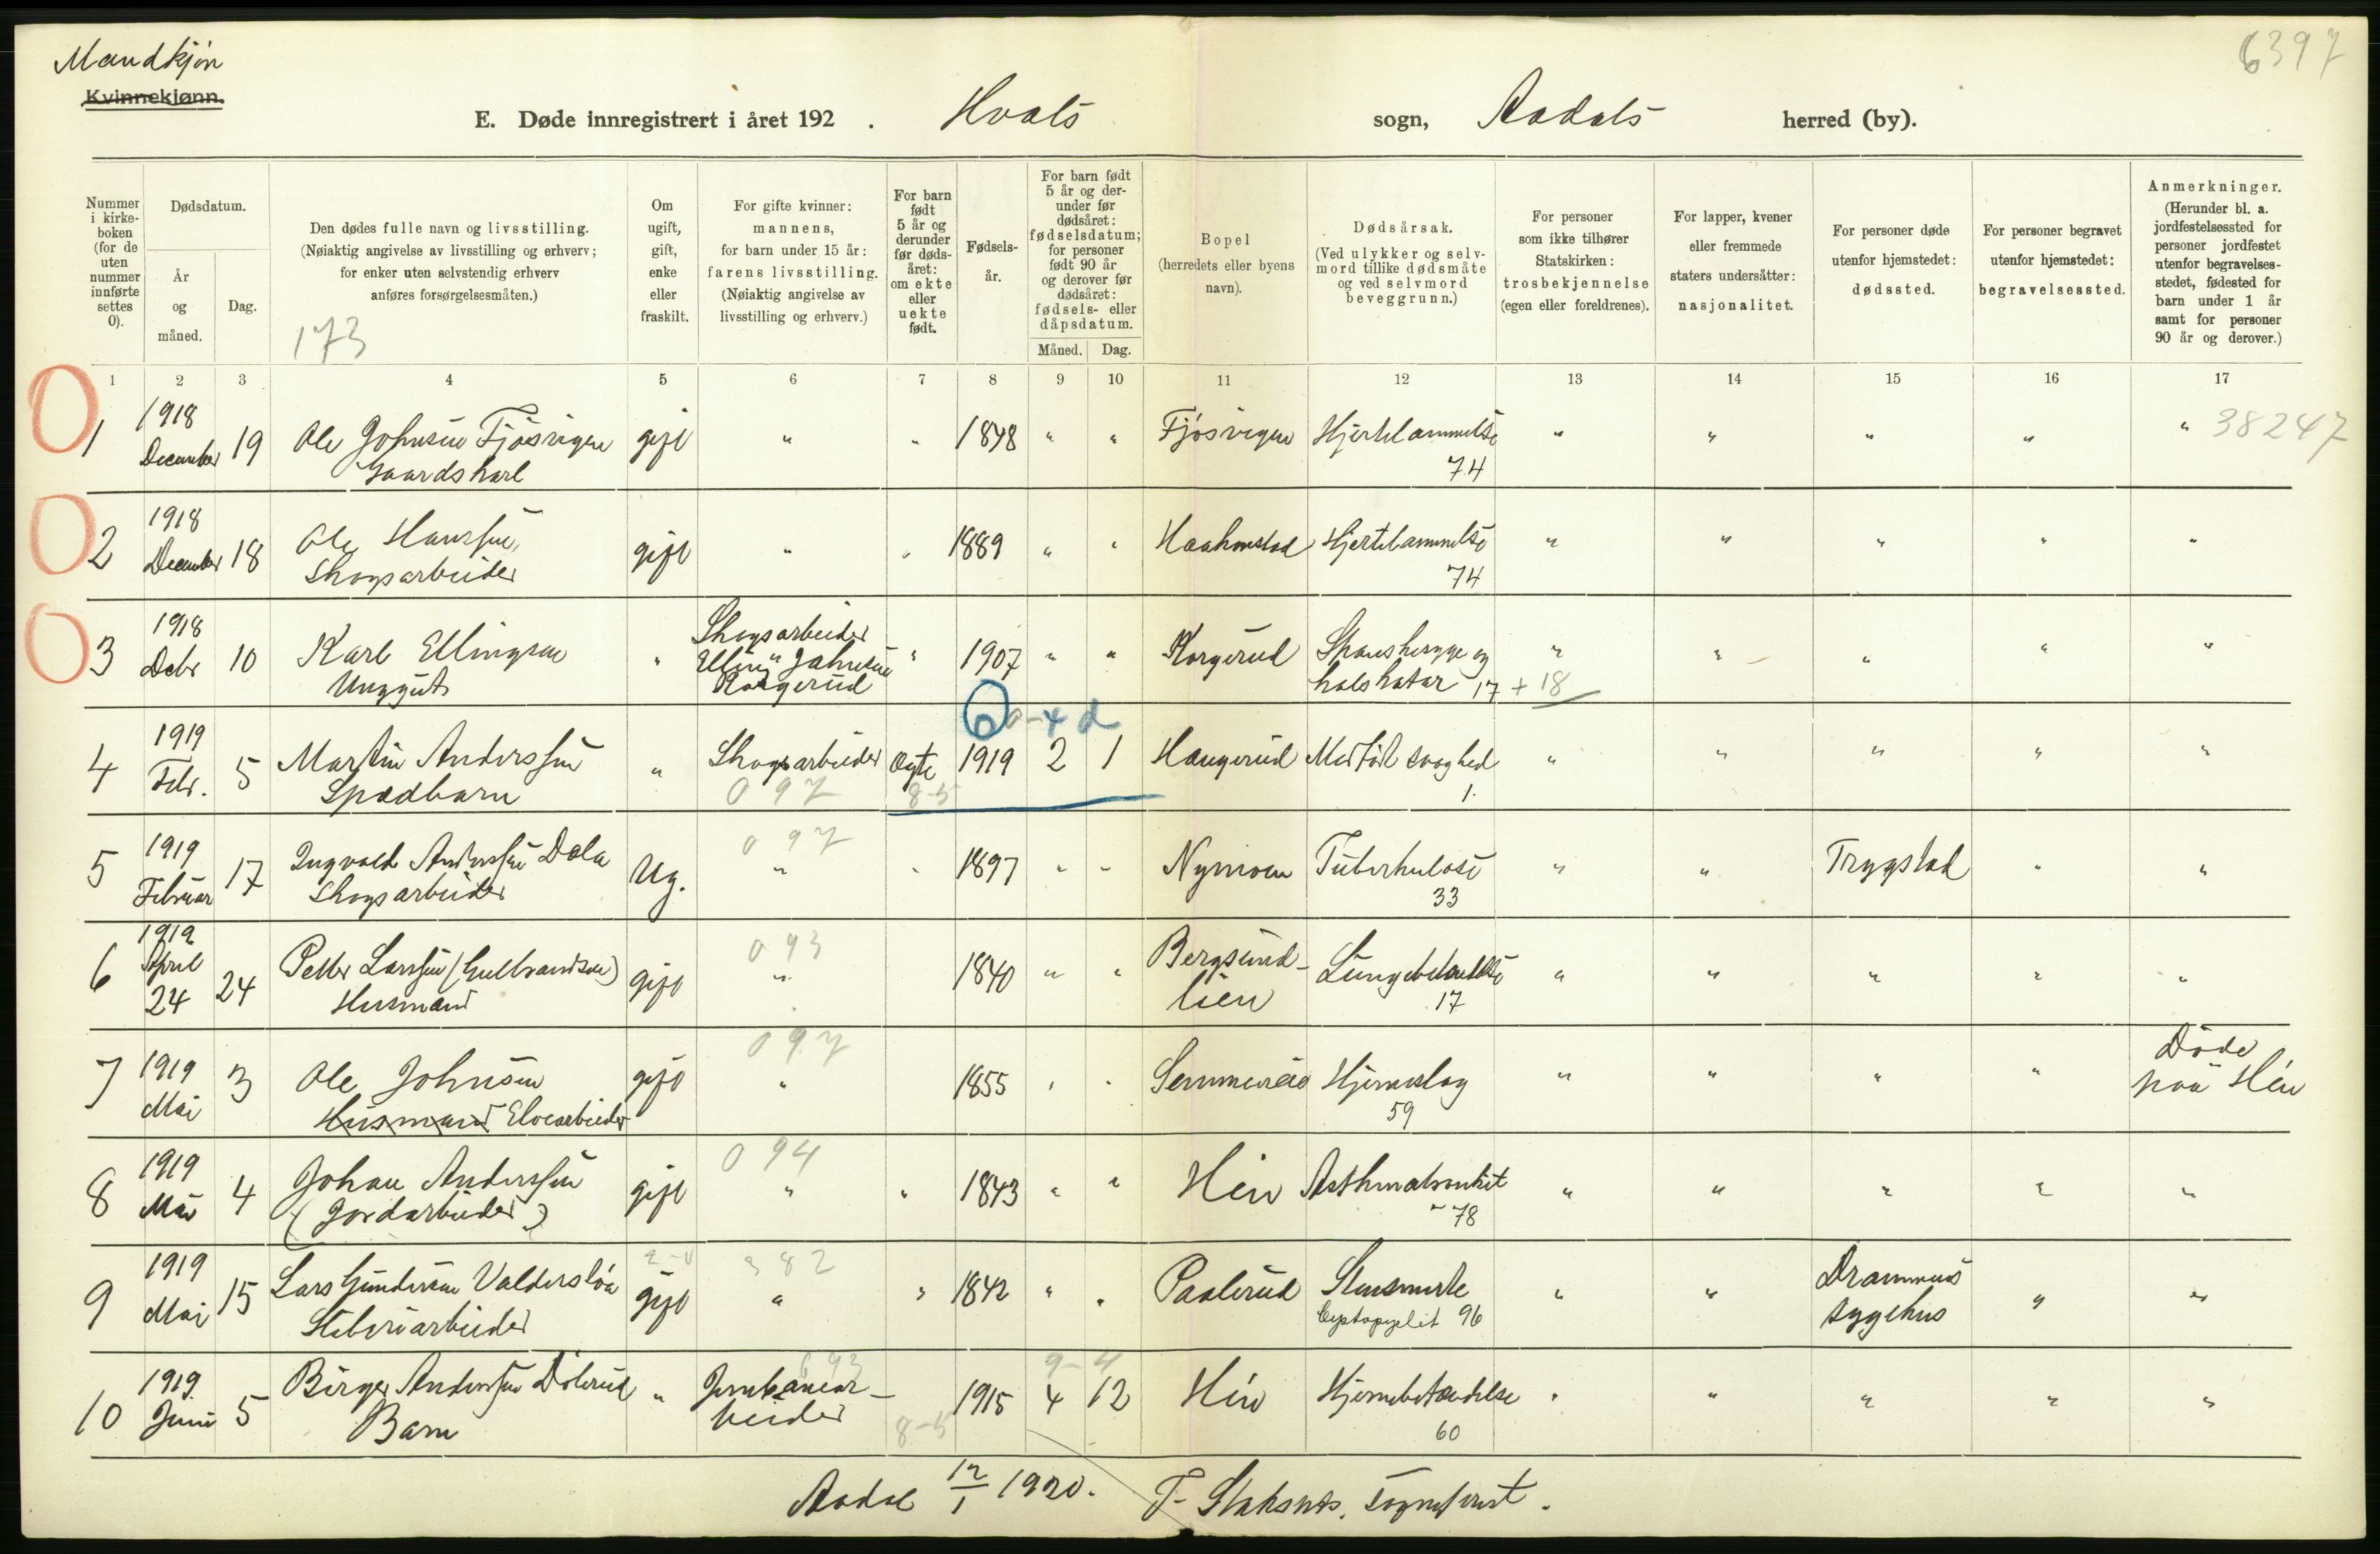 Mandkjön
Kvinnekjønn.
6397
E. Døde innregistrert i året 192 . Hvals sogn, Aadals herred (by).
Nummer i kirkeboken (for de uten nummer innførte settes 0).
Dødsdatum.
År og måned.
Dag.
Den dødes fulle navn og livsstilling.
(Nøiaktig angivelse av livsstilling og erhverv;
for enker uten selvstendig erhverv
anføres forsørgelsesmåten.)
173
Om ugift, gift, enke eller fraskilt.
For gifte kvinner: mannens, for barn under 15 år: farens livsstilling.
(Nøiaktig angivelse av livsstilling og erhverv.)
For barn født 5 år og derunder før dødsåret: om ekte eller uekte født.
Fødselsår.
For barn født 5 år og derunder før dødsåret: fødselsdatum; for personer født 90 år og derover før dødsåret: fødsels- eller dåpsdatum.
Måned. Dag.
Bopel
(herredets eller byens navn).
Dødsårsak.
(Ved ulykker og selvmord tillike dødsmåte og ved selvmord beveggrunn.)
For personer som ikke tilhører Statskirken: trosbekjennelse (egen eller foreldrenes).
For lapper, kvener eller fremmede staters undersåtter: nasjonalitet.
For personer døde utenfor hjemstedet: dødssted.
For personer begravet utenfor hjemstedet: begravelsessted.
Anmerkninger.
(Herunder bl. a. jordfestelsessted for personer jordfestet utenfor begravelsesstedet, fødested for barn under 1 år samt for personer 90 år og derover.)
1 2 3 4 5 6 7 8 9 10 11 12 13 14 15 16 17
1 1918 December 19 Ole Johnsen Fjösvigen gift " " 1848 " " Fjösvigen Hjertelammelse " " " " " 38247
Gaardskarl 74
2 1918 December 18 Ole Hanssen, gift " " 1889 " " Haakonstad Hjertelammelse " " " " "
Skogsarbeider 74
3 1918 Debr 10 Karl Ellingsen " Skogsarbeider Elling Johnsen Korgerud " 1907 " " Korgerud Spanskesyge og " " " " "
Unggut halskatar 17 + 18
6 0-4 d
4 1919 Febr. 5 Martin Anderssen " Skogsarbeider Ægte 1919 2 1 Haugerud Medfödt svaghed " " " " "
Spædbarn 097 8-5 1.
097
5 1919 Februar 17 Ingvald Anderssen Dala Ug. " " 1897 " " Nymoen Tuberkulose " " Trygstad " "
Skogsarbeider 33
093
6 1919 April 24 24 Petter Larssen (Gulbrandsen) gift " 1840 " " Bergsund- Lungebetændelse " " " " "
Husmand lien 17
097
7 1919 Mai 3 Ole Johnsen gift " 1855 " " Hjerneslag " " " " Döde
Husmand Elvearbeider 59 paa Hén
094
8 1919 Mai 4 Johan Anderssen gift " " 1843 " " Hén Asthmabronkit " " " " "
(Jordarbeider) 78
382
9 1919 Mai 15 Lars Gundersen Valderslöa gift " " 1842 " " Paalerud Stensmerte " " Drammens " "
Cystopyelit 96 sygehus
693 9-4
10 1919 Juni 5 Birger Anderssen Dölerud " Jernbanear- 1915 4 12 Hén Hjernebetændelse " " " " "
Barn beider 8-5 60
Aadal 12/1 1920. Sogneprest.